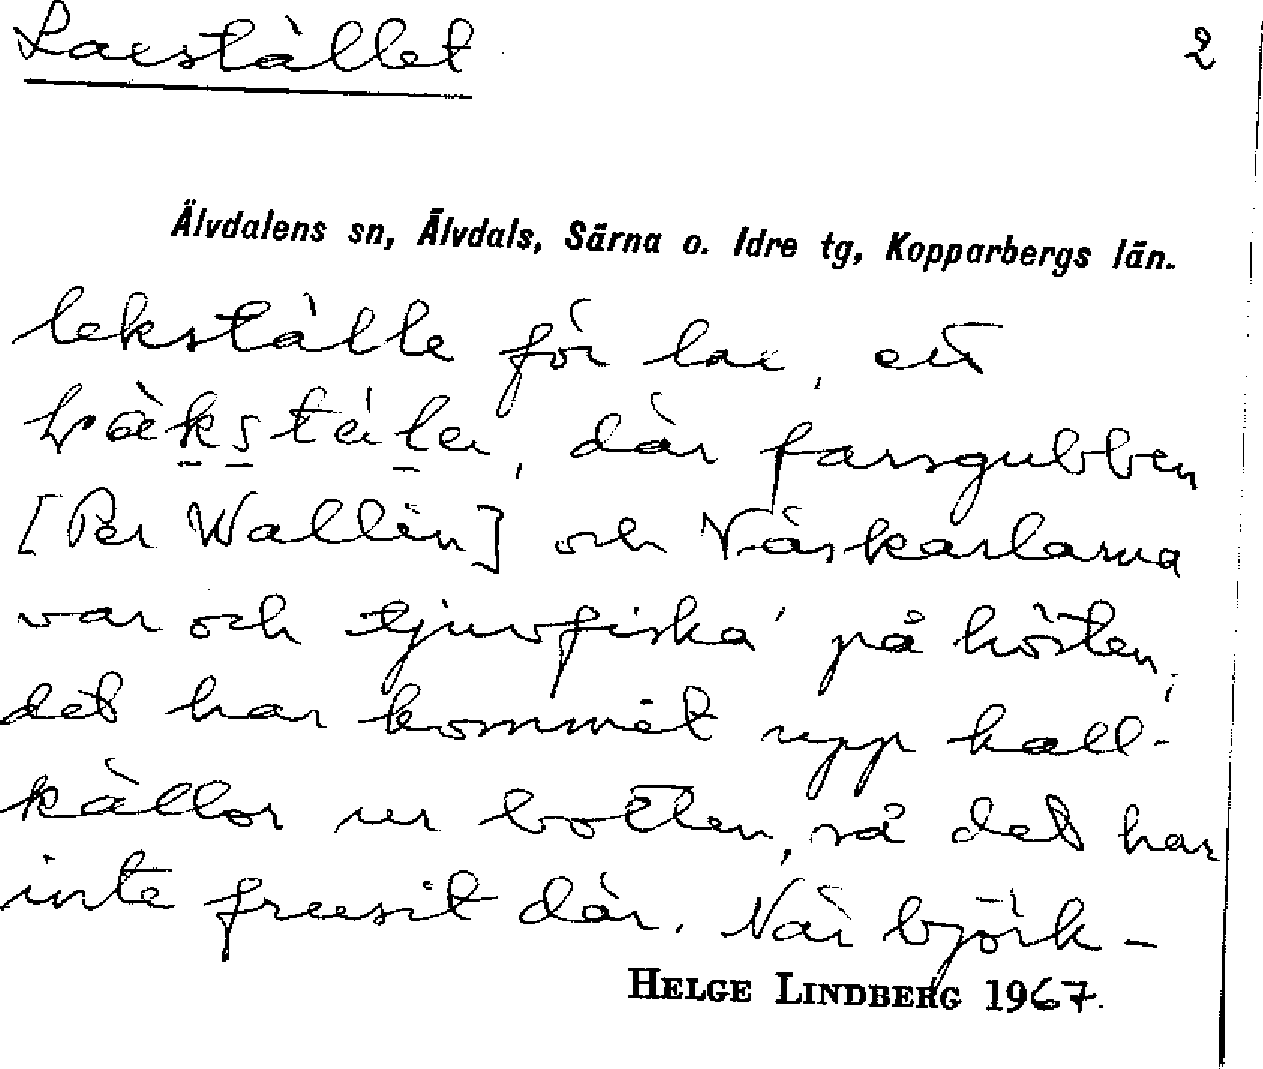 Laxstället
2
Älvdalens sn, Älvdals, Särna o. Idre tg, Kopparbergs län.
lekställe för lax, ett
där farsgubben
[Per Wallin] och Näskarlarna
var och tjuvfiska' på hösten,
det har kommit upp kall-
källor ur botten, så det har
inte frusit där. När björk-
HELGE LINDBERG 1967.